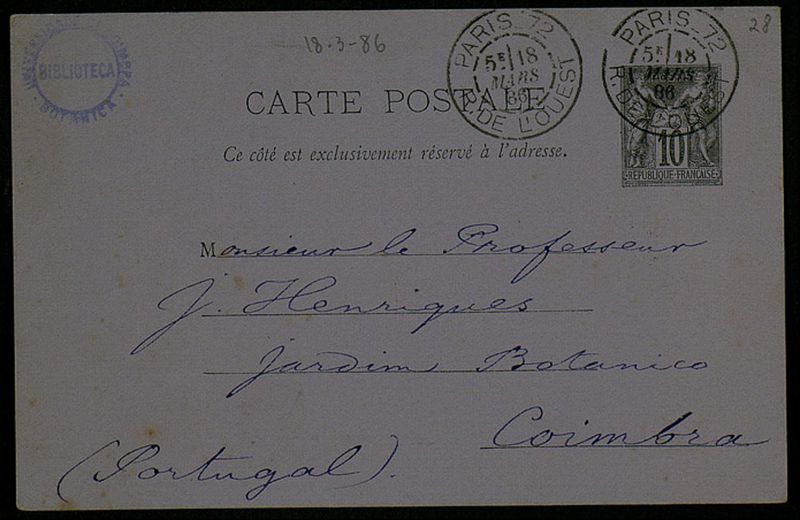 28
18-3-86
BIBLIOTECA
BOTANICA
PARIS_72
5E 18
MARS
86
R. DE L'OUEST
PARIS_72
5E 18
MARS
86
R. DE L'OUEST
CARTE POSTALE
10
REPUBLIQUE FRANÇAISE
Ce côté est exclusivement réservé à l'adresse.
Monsieur le Professeur
J. Henriques
Jardim Botanico
Coimbra
(Portugal).